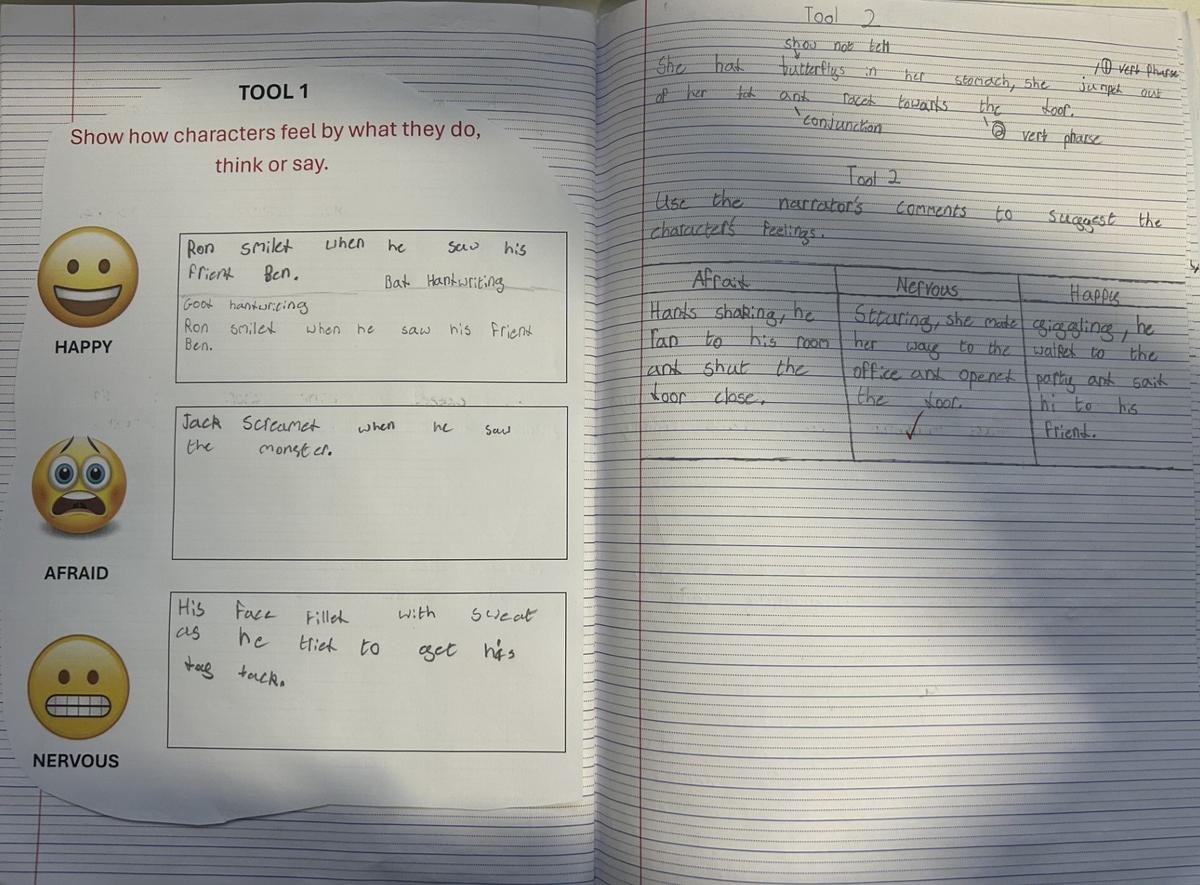 TOOL 1
Show how characters feel by what they do,
think or say.
HAPPY
Ron smiled when he saw his
friend Ben.
Bad Handwriting
Good handwriting
Ron smiled when he saw his friend
Ben.
AFRAID
Jack Screamed when he saw
the monster.
NERVOUS
His Face Filled with sweat
as he tried to get his
dog back.
Tool 2
show not tell
① verb pharse
She had butterflys in her stomach, she jumped out
of her bed and raced towards the door.
conjunction
② verb pharse
Tool 2
Use the narrator's comments to suggest the
character's feelings.
Afraid
Hands shaking, he
ran to his room
and shut the
door close.
Nervous
Stturing, she made
her way to the
office and opened
the door.
Happy
giggling, he
walked to the
party and said
hi to his
friend.